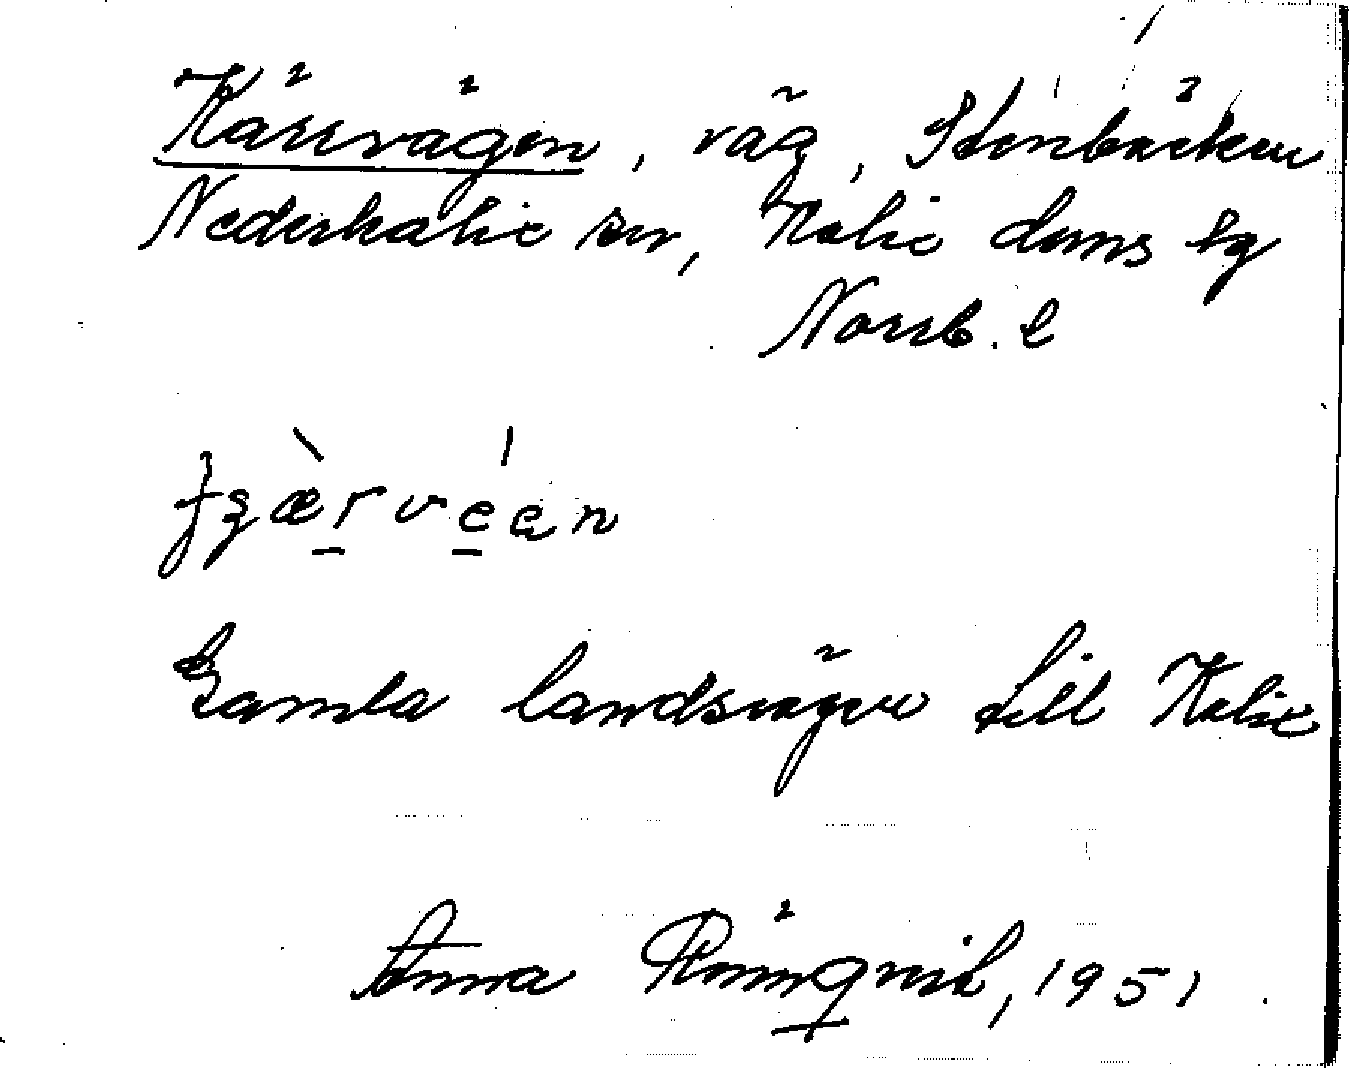 Kärrvägen, väg, Stenbäcken
Nederkalix sn, Kalix doms tg
Norrb. l
Gamla landsvägen till Kalix
Anna Rönnqvist, 1951